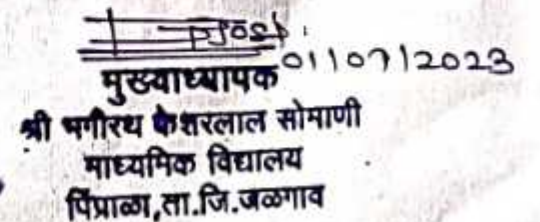 01/07/2023
मुख्याध्यापक
श्री भगीरथ केशरलाल सोमाणी
माध्यमिक विद्यालय
पिंप्राळा,ता.जि.जळगाव